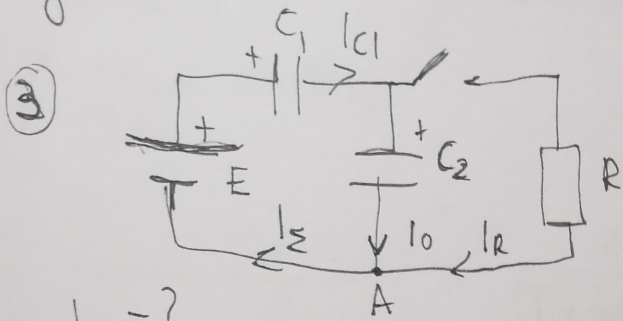 3
C₁ I_C1
+
+
+
E
C₂
R
I_Σ
I_0
I_R
A
-?